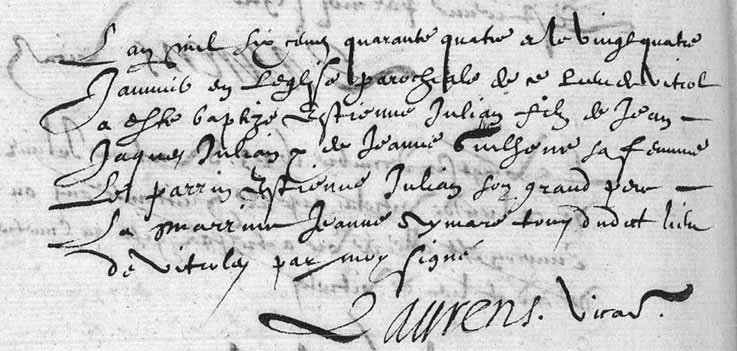 L an mil six cens quarante quatre et le vingt quatre
Janvier en Leglise parochiale de ce Lieu de vitrol
a este baptize Estienne Julian filz de Jean
Jaques Julian et de Jeanne Guilhene sa femme
Le parrin Estienne Julian son grand pere
La marrine Jeanne Aymare tous dudict lieu
de vitroles par moy signe
Laurens. vicaire.